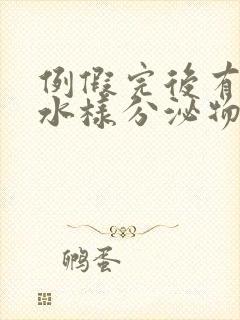 例假完後有
水樣分泌物
鸭蛋